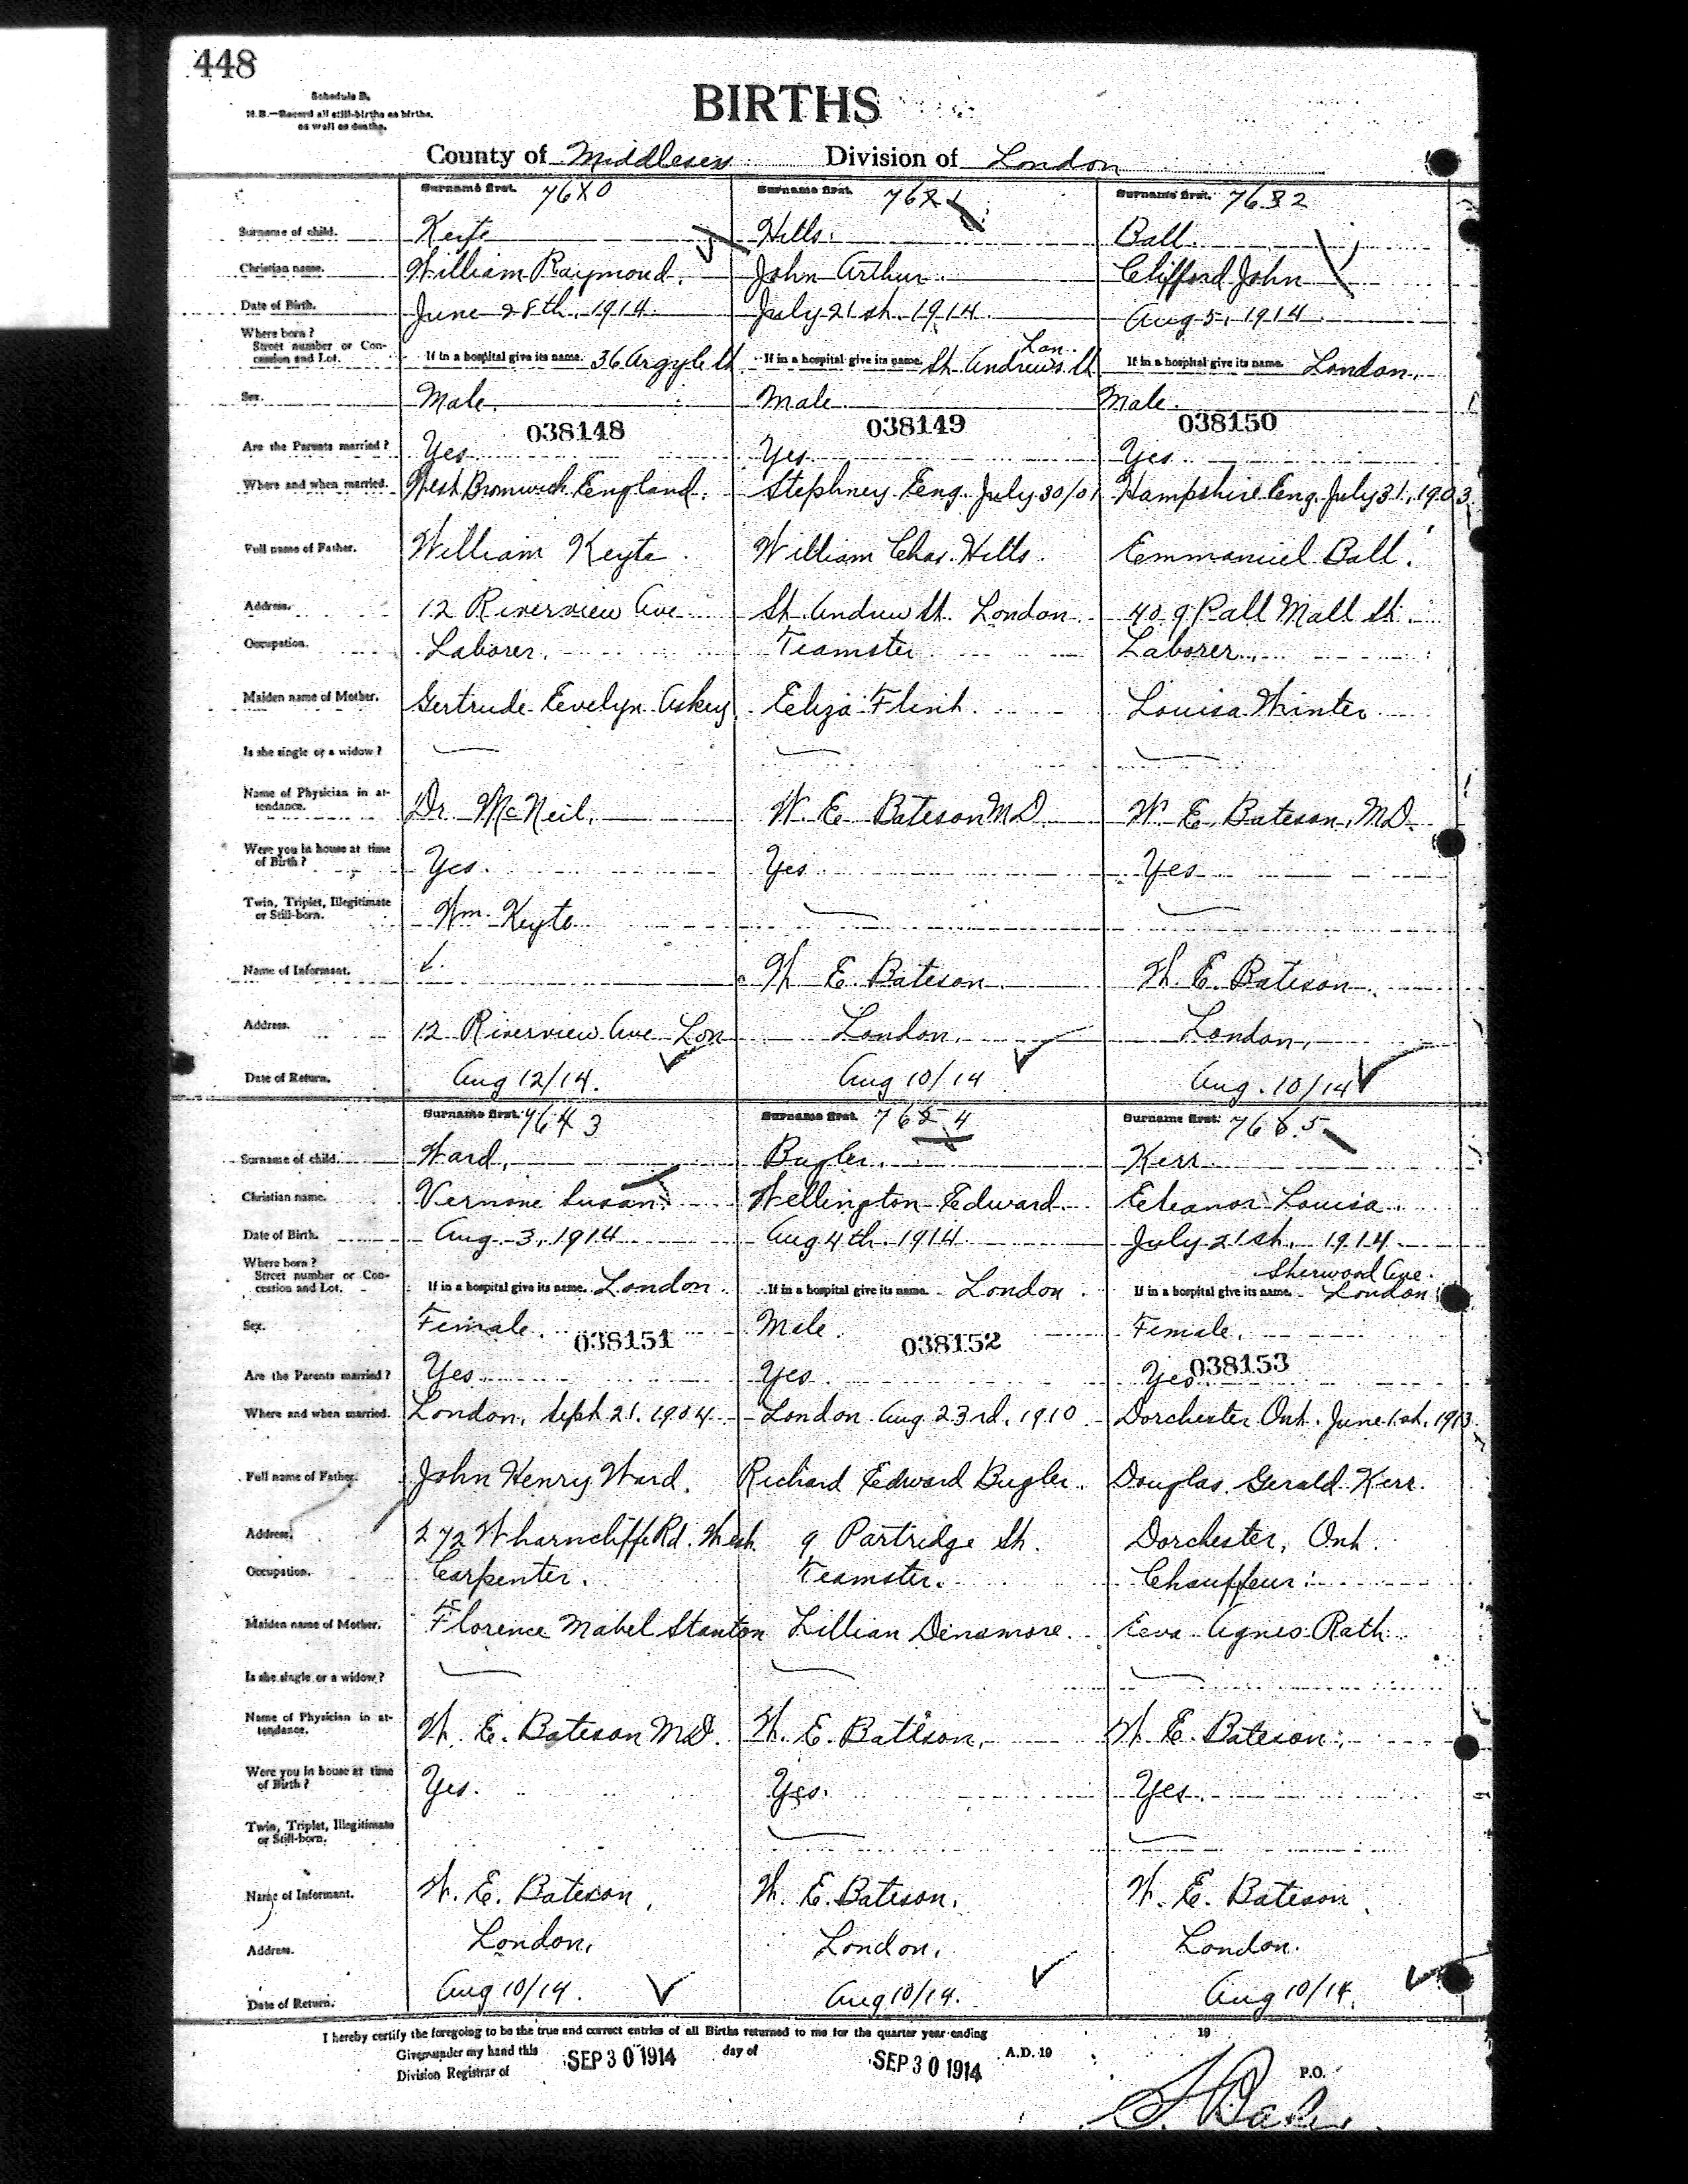 448
Schedule B.
N.B.—Record all still-births as births.
as well as deaths.
BIRTHS
County of Middlesex Division of London
Surname first. 7680 Surname first. 7681 Surname first. 7682
Surname of child. Keyte Hills. Ball.
Christian name. William Raymond. John Arthur. Clifford John
Date of Birth. June 28th. 1914. July 21st. 1914. Aug 5, 1914
Where born?
Street number or Con- Lon.
cession and Lot. If in a hospital give its name. 36 Argyle St If in a hospital give its name. St Andrews St If in a hospital give its name. London.
Sex. Male. Male. Male.
038148 038149 038150
Are the Parents married? Yes Yes. Yes
Where and when married. West Bromwich England. Stephney Eng. July 30/01 Hampshire Eng. July 31, 1903.
Full name of Father. William Keyte. William Chas. Hills. Emmanuel Ball.
Address. 12 Riverview Ave St. Andrew St. London 409 Pall Mall St.
Occupation. Laborer. Teamster Laborer.
Maiden name of Mother. Gertrude Evelyn Askey. Eliza Flint. Louisa Winter
Is she single or a widow?
Name of Physician in at-
tendance. Dr. McNeil. W. E Bateson MD W. E. Bateson, MD.
Were you in house at time
of Birth? Yes. Yes Yes
Twin, Triplet, Illegitimate
or Still-born. Wm. Keyte
Name of Informant. W E. Bateson. W. E. Bateson.
Address. 12 Riverview Ave Lon London. London.
Date of Return. Aug 12/14. Aug 10/14 Aug. 10/14
Surname first. 7643 Surname first. 7654 Surname first. 7665
Surname of child. Ward. Bugler. Kerr
Christian name. Vernone Susan. Wellington Edward. Eleanor Louisa.
Date of Birth. Aug. 3, 1914 Aug 4th. 1914 July 21st. 1914.
Where born?
Street number or Con- Sherwood Ave.
cession and Lot. If in a hospital give its name. London If in a hospital give its name. London If in a hospital give its name. London
Sex. Female. Male. Female.
038151 038152 038153
Are the Parents married? Yes Yes Yes
Where and when married. London. Sept 21. 1904 London Aug 23rd, 1910 Dorchester Ont. June 1st, 1913
Full name of Father. John Henry Ward. Richard Edward Bugler. Douglas Gerald Kerr.
Address. 272 Wharncliffe Rd. West. 9 Partridge St. Dorchester, Ont.
Occupation. Carpenter. Teamster. Chauffeur.
Maiden name of Mother. Florence Mabel Stanton Lillian Densmore. Eva Agnes Rath
Is she single or a widow?
Name of Physician in at-
tendance. W. E. Bateson MD. W. E. Bateson. W. E. Bateson.
Were you in house at time
of Birth? Yes. Yes. Yes.
Twin, Triplet, Illegitimate
or Still-born.
Name of Informant. W. E. Bateson, W. E. Bateson. W. E. Bateson
Address. London. London. London.
Date of Return. Aug 10/14. Aug 10/14. Aug 10/14.
I hereby certify the foregoing to be the true and correct entries of all Births returned to me for the quarter year ending 19
Given under my hand this SEP 30 1914 day of SEP 30 1914 A.D. 19
Division Registrar of P.O.